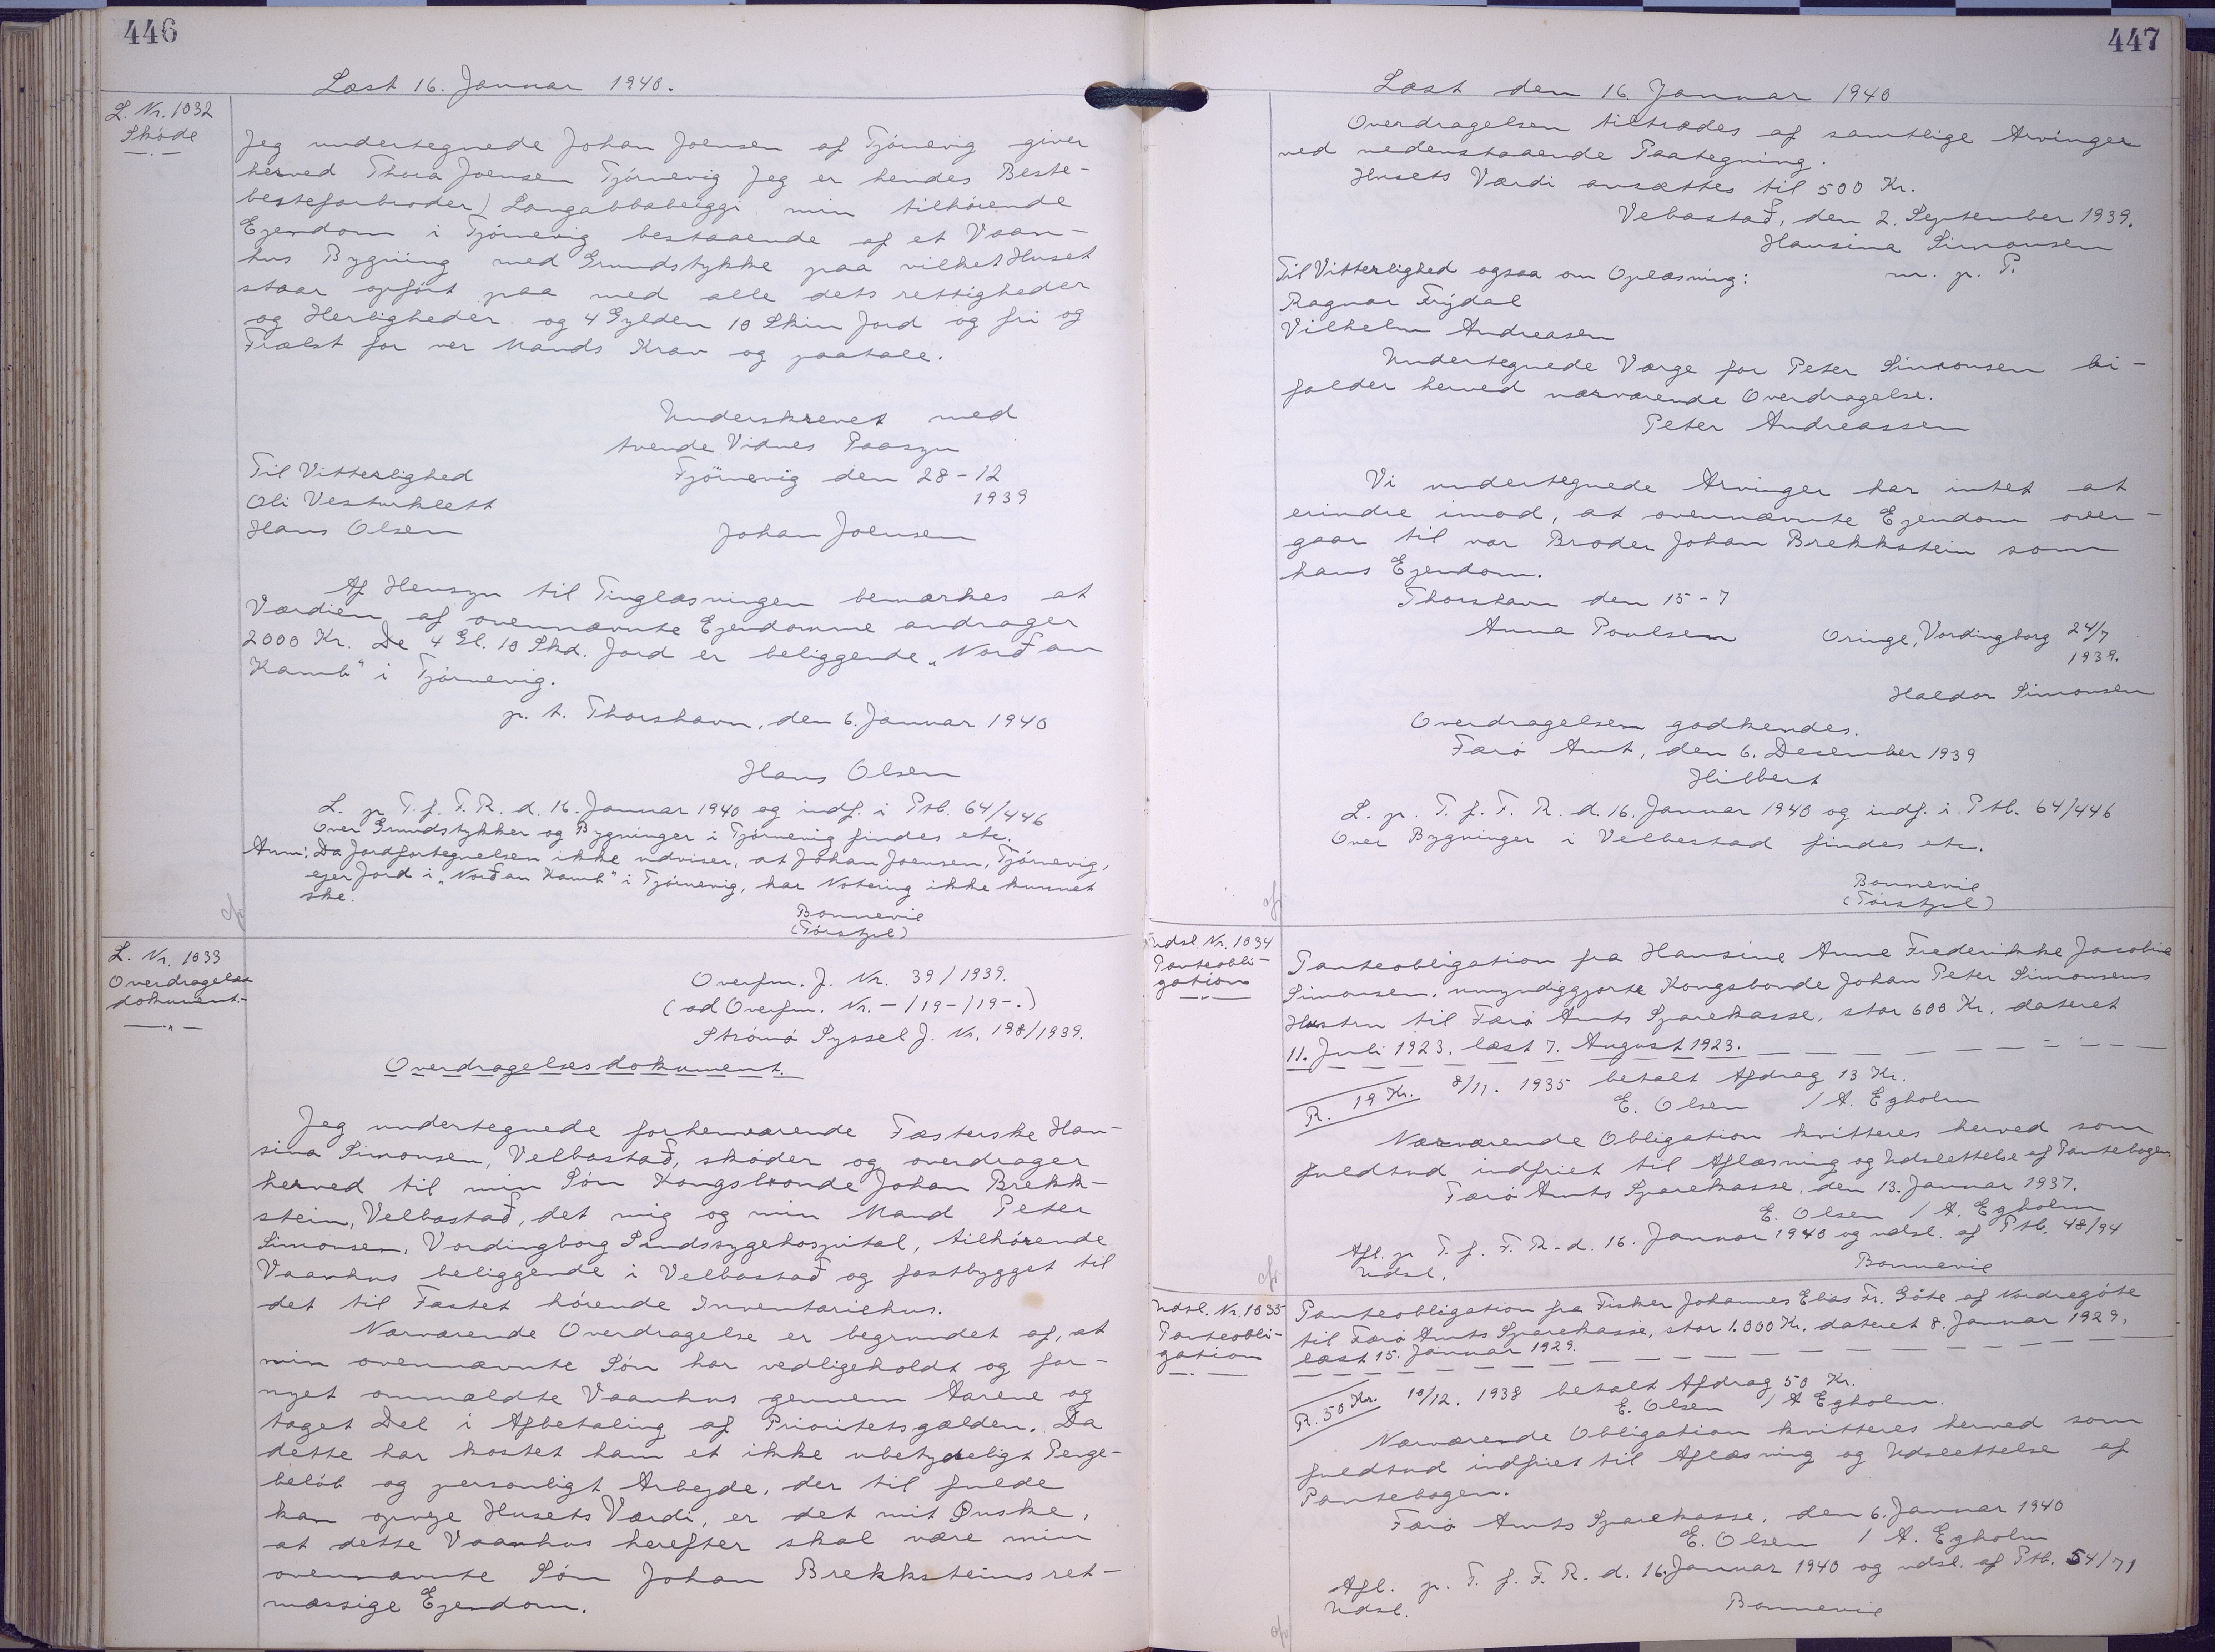 446
Læst 16. Januar 1940.
L. Nr. 1032
Skøde
Jeg undertegnede Johan Joensen af Tjórnevig giver
herved Thora Joensen Tjórnevig Jeg er hendes Beste-
bestefarbroder) Langabbabeiggi min tilhørende
Ejendom i Tjórnevig bestaaende af et Vaan-
hus Bygning med Grundstykke paa vilket Huset
staar opført paa med alle dets rettigheder
og Herligheder og 4 Gylden 10 Skin Jord og fri og
Frælst for ver Mands Krav og paatale.
Underskrevet med
tvende Vidnes Paasyn
Til Vitterlighed
Tjörnevig den 28-12
1939
Oli Vesturklett
Hans Olsen
Johan Joensen
Af Hensyn til Tinglæsningen bemærkes at
Værdien af ovennævnte Ejendomme andrager
2000 Kr. De 4 Gl. 10 Skd. Jord er beliggende „Norðan
Kamb" i Tjórnevig.
p. t. Thorshavn, den 6. Januar 1940
Hans Olsen
L. p. T. f. F. R. d. 16. Januar 1940 og indf. i Ptb. 64/446
Over Grundstykker og Bygninger i Tjórnevig findes etc.
Anm: Da Jordfortegnelsen ikke udviser, at Johan Joensen, Tjórnevig,
ejer Jord i „Norðan Kamb" i Tjórnevig, har Notering ikke kunnet
ske.
Bonnevie
(Tórstjil)
cfr
L. Nr. 1033
Overdragelses
dokument.-
Overfm. J. Nr. 39/1939.
(ad Overfm. Nr. -/19-/19-.)
Strømø Syssel J. Nr. 198/1939.
Overdragelsesdokument.
Jeg undertegnede forhenværende Fæsterske Han-
sina Simonsen, Velbastað, skøder og overdrager
herved til min Søn Kongsbonde Johan Brekk-
stein, Velbastað, det mig og min Mand Peter
Simonsen, Vordingborg Sindssygehospital, tilhørende
Vaanhus beliggende i Velbastað og fastbygget til
det til Fæstet hørende Inventariehus.
Nærværende Overdragelse er begrundet af, at
min ovennævnte Søn har vedligeholdt og for-
nyet ommældte Vaanhus gennem Aarene og
taget Del i Afbetaling af Prioritetsgælden. Da
dette har kostet ham et ikke ubetydeligt Penge-
beløb og personligt Arbejde, der til fulde
kan opveje Husets Værdi, er det mit Ønske,
at dette Vaanhus herefter skal være min
ovennævnte Søn Johan Brekksteins ret-
mæssige Ejendom.
447
Læst den 16. Januar 1940
Overdragelsen tiltrædes af samtlige Arvinger
ved nedenstaaende Paategning.
Husets Værdi ansættes til 500 Kr.
Vebastað, den 2. September 1939.
Hansina Simonsen
Til Vitterlighed ogsaa om Oplæsning:
m. p. P.
Ragnar Frýdal
Vilhelm Andreasen
Undertegnede Værge for Peter Simonsen bi-
falder herved nærværende Overdragelse.
Peter Andreassen
Vi undertegnede Arvinger har intet at
erindre imod, at ovennævnte Ejendom over-
gaar til vor Broder Johan Brekkstein som
hans Ejendom.
Thorshavn den 15-7
Anna Poulsen
Oringe, Vordingborg 24/7
1939.
Haldor Simonsen
Overdragelsen godkendes.
Færø Amt, den 6. December 1939
Hilbert
L. p. T. f. F. R. d. 16. Januar 1940 og indf. i Ptb. 64/446
Over Bygninger i Velbestad findes etc.
Bonnevie
(Tórstjil)
cfr
Udsl. Nr. 1034
Panteobli-
gation
Panteobligation fra Hansine Anne Frederikke Jacobine
Simonsen, umyndiggjorte Kongsbonde Johan Peter Simonsens
Hustru til Færø Amts Sparekasse, stor 600 Kr. dateret
11. Juli 1923, læst 7. August 1923.
R. 19 Kr.
8/11. 1935 betalt Afdrag 13 Kr.
E. Olsen / A. Egholm
Nærværende Obligation kvitteres herved som
fuldtud indfriet til Aflæsning og Udslettelse af Pantebogen
Færø Amts Sparekasse, den 13. Januar 1937.
E. Olsen / A. Egholm
Afl. p. T. f. F. R. d. 16. Januar 1940 og udsl. af Ptb. 48/94
Udsl.
Bonnevie
cfr
Udsl. Nr. 1035
Panteobli-
gation
Panteobligation fra Fisker Johannes Elias Fr. Gøte af Nordregøte
til Færø Amts Sparekasse, stor 1.000 Kr. dateret 8. Januar 1929,
læst 15. Januar 1929.
R. 50 Kr.
19/12. 1938 betalt Afdrag 50 Kr.
E. Olsen / A Egholm.
Nærværende Obligation kvitteres herved som
fuldtud indfriet til Aflæsning og Udslettelse af
Pantebogen.
Færø Amts Sparekasse, den 6. Januar 1940
E. Olsen / A. Egholm
Afl. p. T. f. F. R. d. 16. Januar 1940 og udsl. af Ptb. 54/71
Udsl.
Bonnevie
cfr